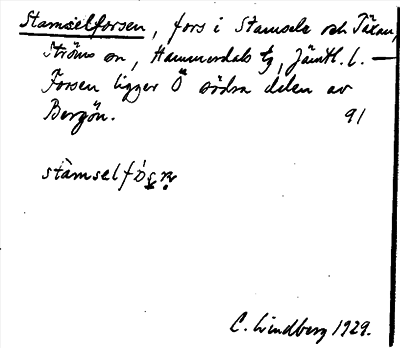 Stamselforsen, fors i Stamsele och Täxan,
Ströms sn, Hammerdals tg, Jämtl. l. —
Forsen ligger Ö södra delen av
Bergön. 91
stamselfósn
C. Lindberg 1929.